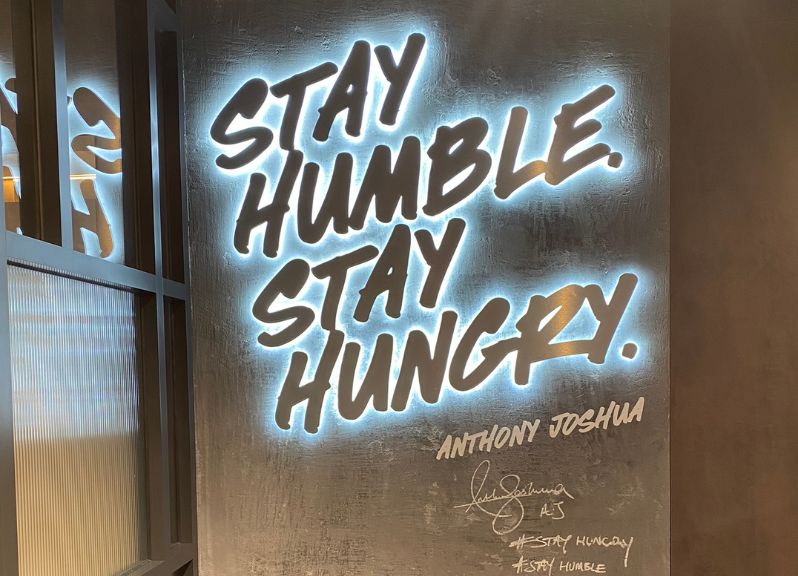 STAY
HUMBLE.
STAY
HUNGRY.
ANTHONY JOSHUA
A.J
#STAY HUNGRY
#STAY HUMBLE